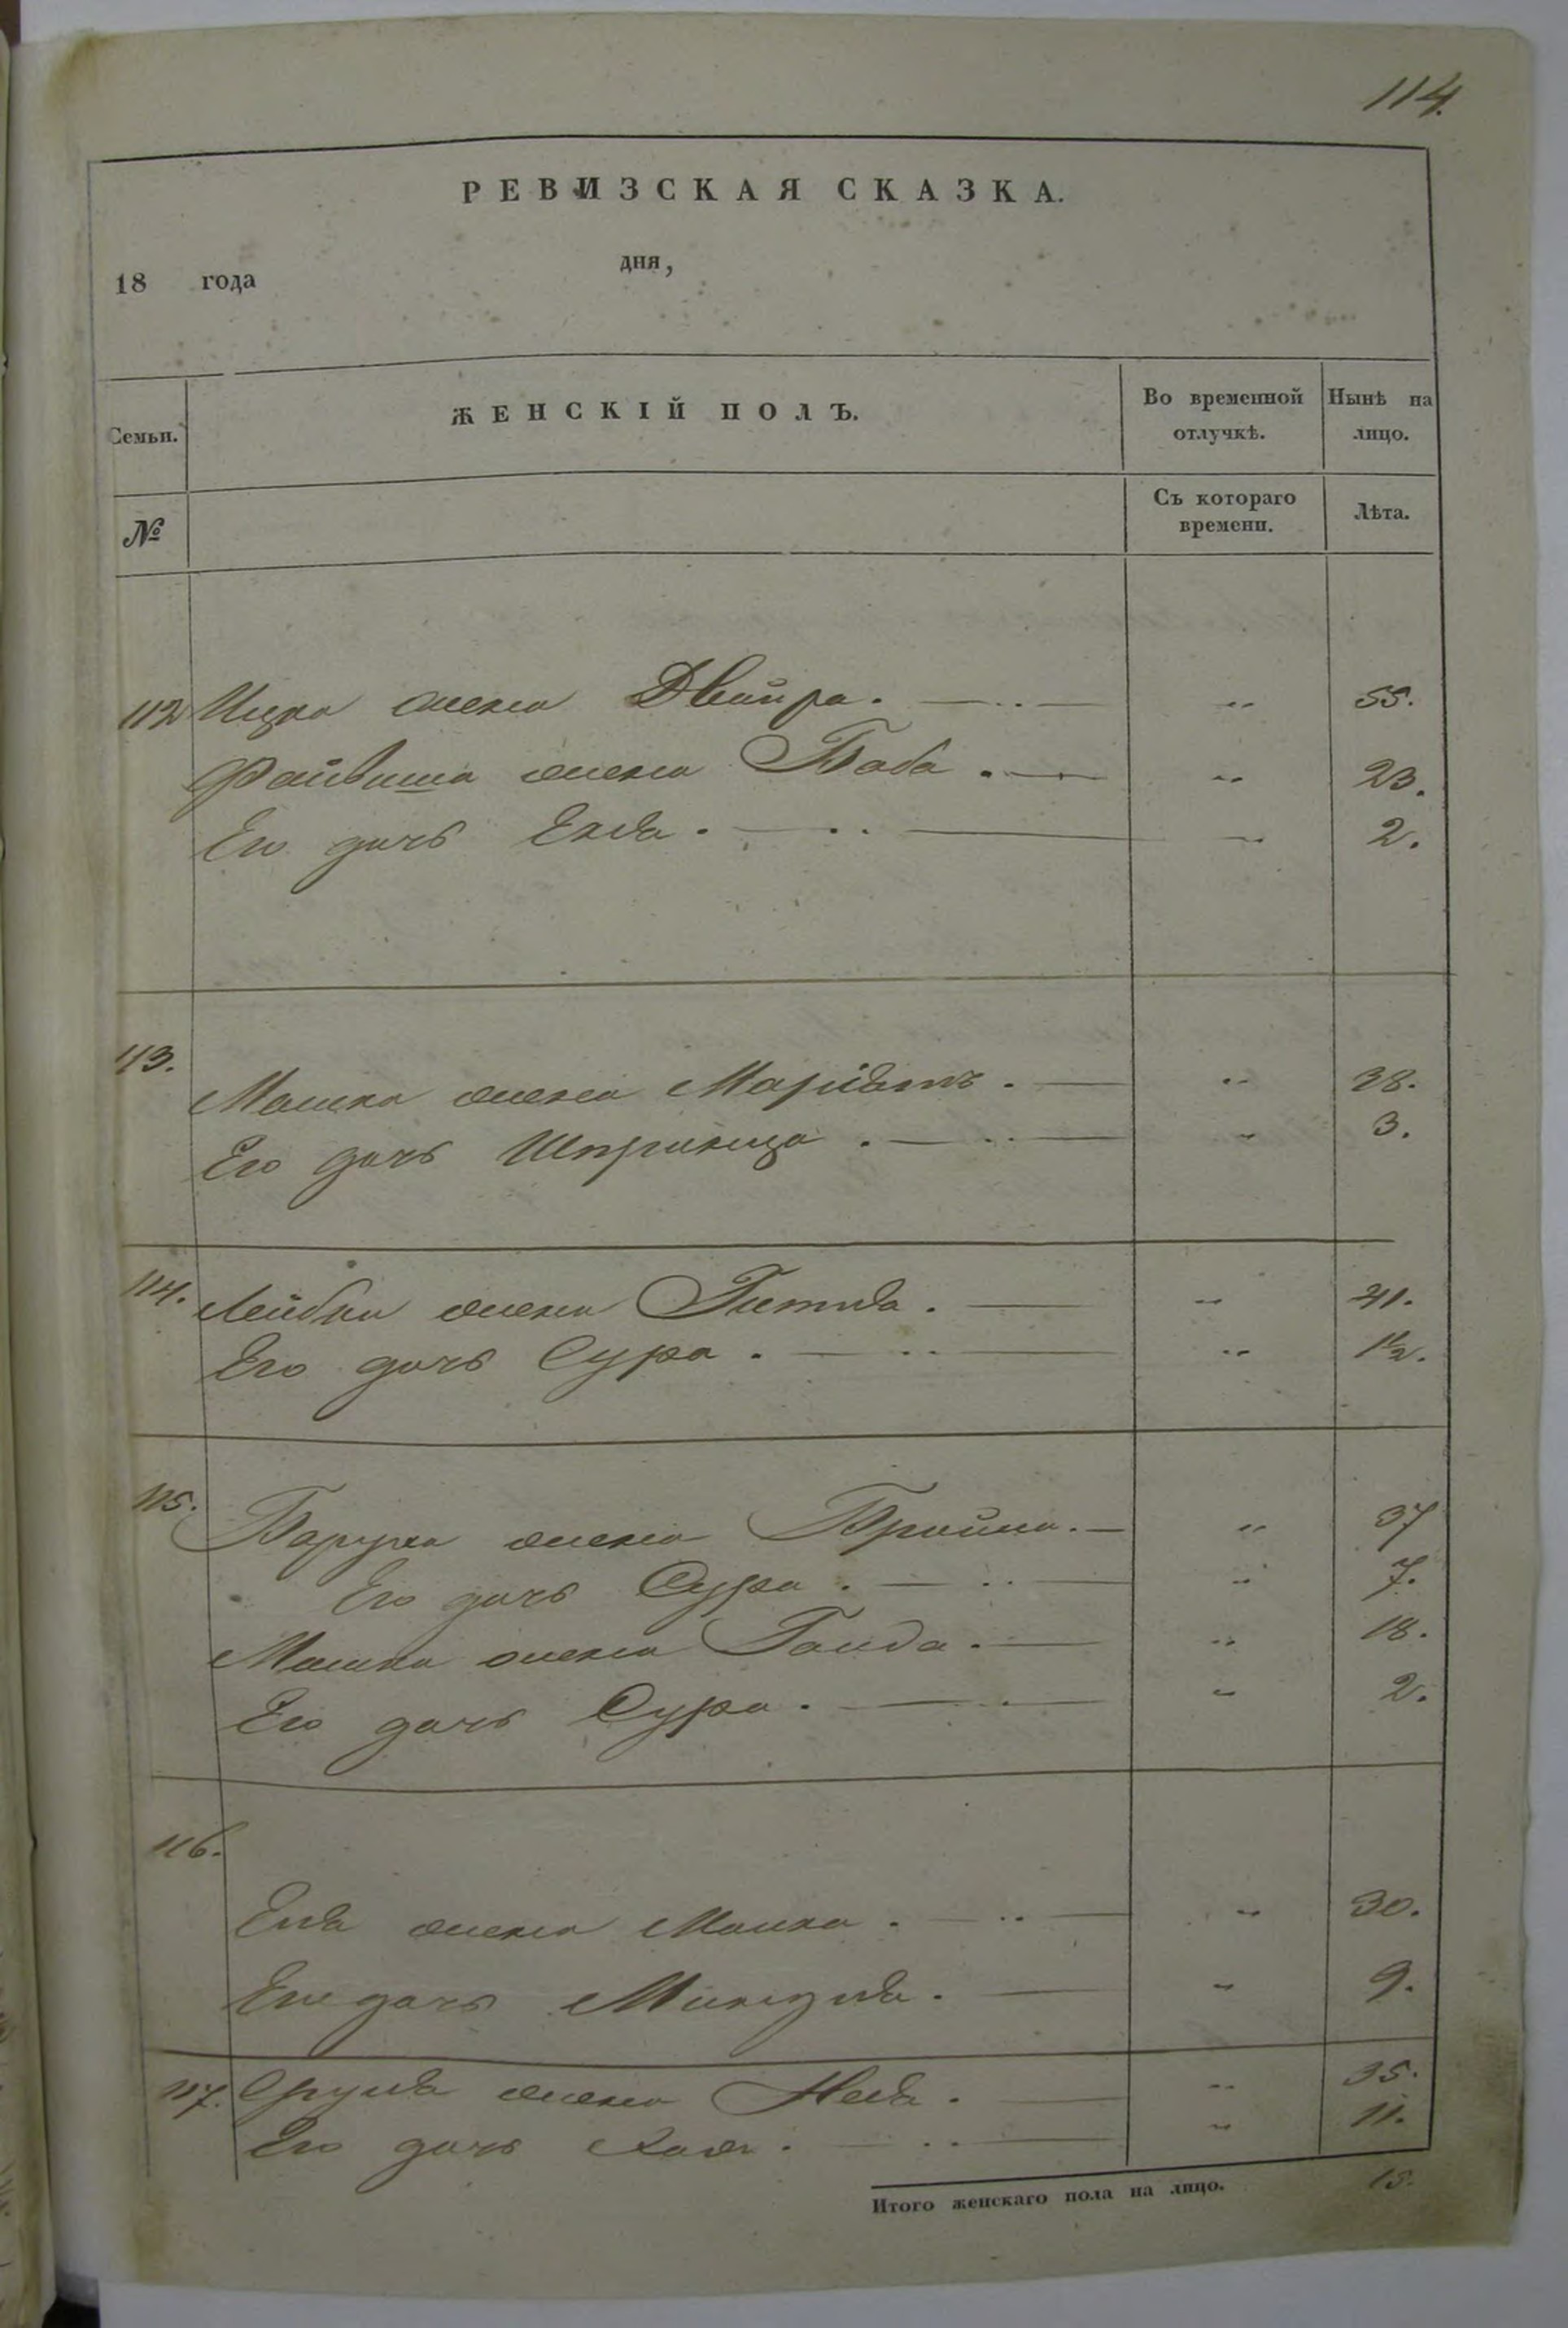 114.
РЕВИЗСКАЯ СКАЗКА.
18 года дня,
Семьи. ЖЕНСКІЙ ПОЛЪ. Во временной отлучкѣ. Нынѣ на лицо.
№ Съ котораго времени. Лѣта.
112 Ицка жена Двейра. — .. — „ 55.
Файвиша жена Баба. — „ 23.
Его дочь — .. — „ 2.
113.
Мошка жена — „ 38.
Его дочь Шпринца. — .. — „ 3.
114. Лейбы жена — „
Его дочь Сура. — .. — „ 1½.
115. Баруха жена Брайна. — „ 37
Его дочь Сура. — .. — „ 7.
Мошка жена — „ 18.
Его дочь Сура. — . — „ 2.
116.
жена — .. — „ 30.
Его дочь — „ 9.
117. жена — „ 35.
Его дочь — .. — „ 11.
Итого женскаго пола на лицо. 15.